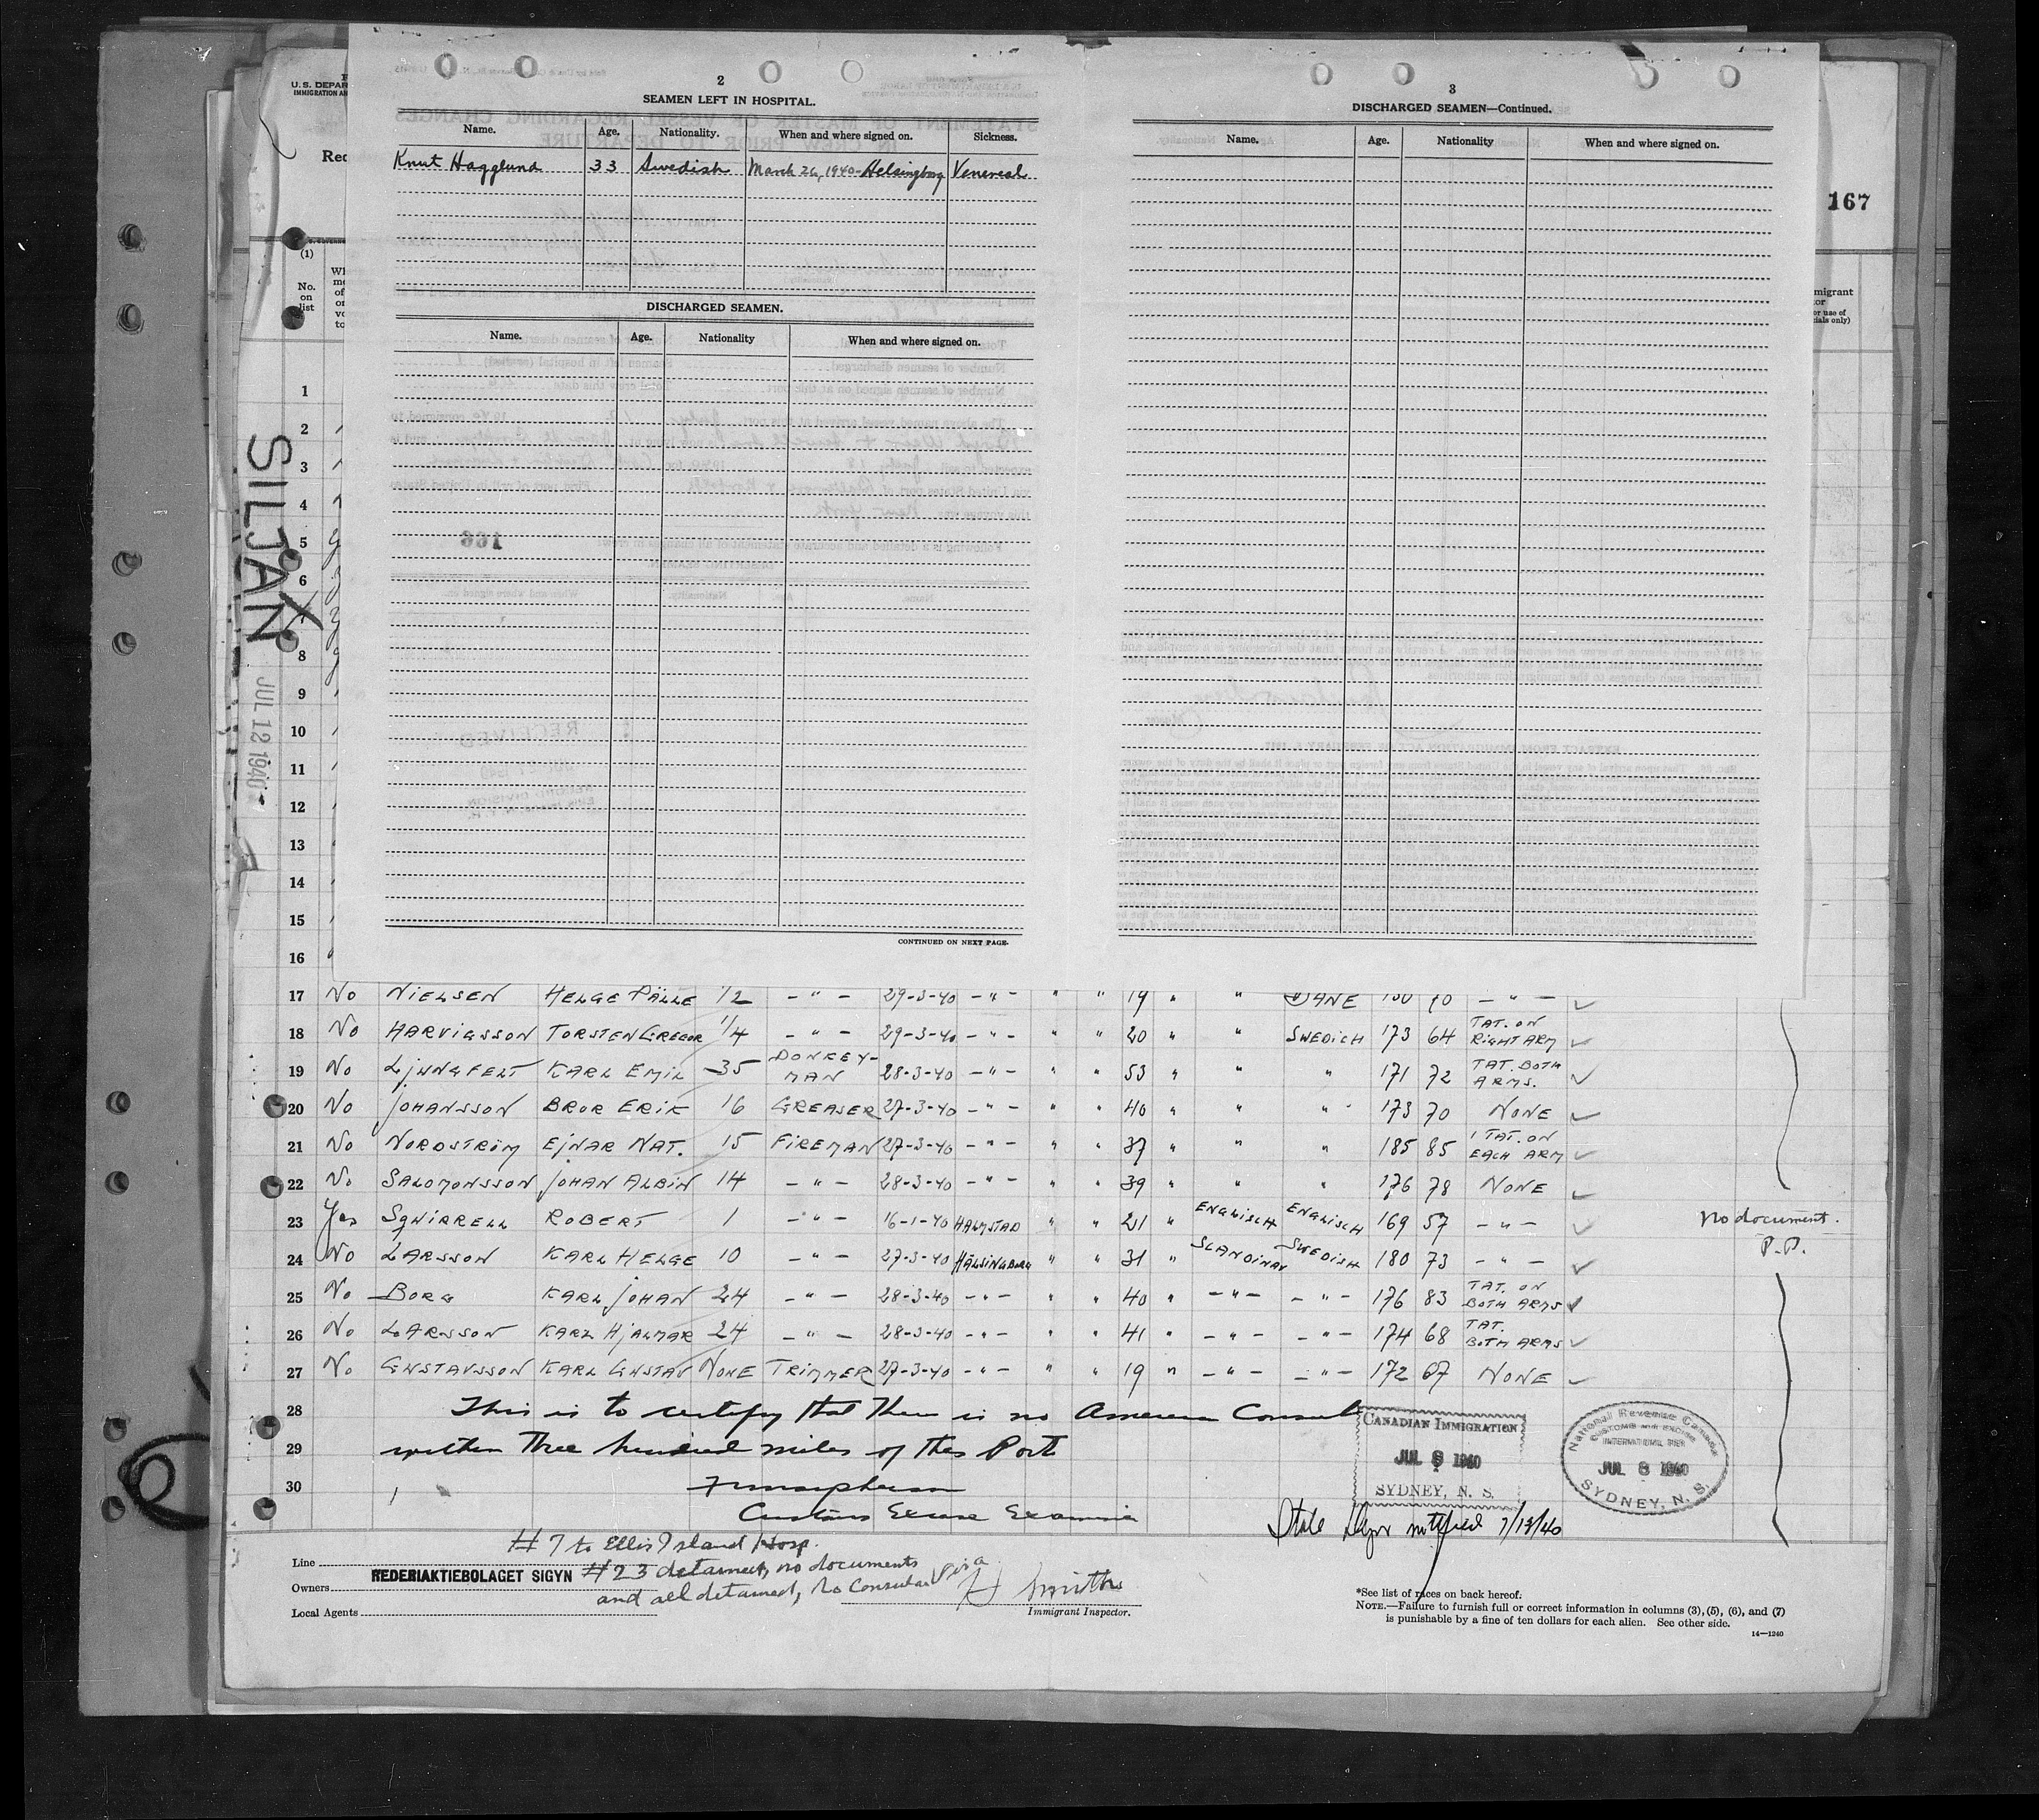 2
SEAMEN LEFT IN HOSPITAL.
Name. Age. Nationality. When and where signed on. Sickness.
Knut Hagglund 33 Swedish March 26, 1940-Helsingborg Venereal
DISCHARGED SEAMEN.
Name. Age. Nationality When and where signed on.
CONTINUED ON NEXT PAGE.
3
DISCHARGED SEAMEN—Continued.
Name. Age. Nationality When and where signed on.
167
U.S. DEPAR
IMMIGRATION AN
(1)
No.
on
list
migrant
or use of
ials only)
SILJAN
JUL 12 1940
1
2
3
4
5
6
8
9
10
11
12
13
14
15
16
17 No NIELSEN HELGE PÄLLE 1/2 -"- 29-3-40 -"- " " 19 " " DANE 180 70 -"-
18 No HARVIGSSON TORSTEN GREGOR 1/4 -"- 29-3-40 -"- " " 20 " " SWEDiCH 173 64 TAT. ON RiGHT ARM
19 No LjUNGFELT KARL EMiL 35 DONKEY-MAN 28-3-40 -"- " " 53 " " " 171 72 TAT. BOTH ARMS.
20 No JOHANSSON BROR ERiK 16 GREASER 27-3-40 -"- " " 40 " " " 173 70 NONE
21 No NORDSTRÖM EjNAR NAT. 15 FiREMAN 27-3-40 -"- " " 37 " " " 185 85 1 TAT. ON EACH ARM
22 No SALOMONSSON JOHAN ALBiN 14 -"- 28-3-40 -"- " " 39 " " " 176 78 NONE
23 Yes SQUIRRELL ROBERT 1 -"- 16-1-40 HALMSTAD " " 21 " ENGLiSCH ENGLiSCH 169 57 -"- No document.
24 No LARSSON KARL HELGE 10 -"- 27-3-40 HÄLSiNGBORG " " 31 " SCANDiNAV SWEDiSH 180 73 -"- P.P.
25 No BORG KARL JOHAN 24 -"- 28-3-40 -"- " " 40 " -"- -"- 176 83 TAT. ON BOTH ARMS
26 No LARSSON KARL HjALMAR 24 -"- 28-3-40 -"- " " 41 " -"- -"- 174 68 TAT. BOTH ARMS
27 No GUSTAVSSON KARL GUSTAV NONE TRiMMER 27-3-40 -"- " " 19 " -"- -"- 172 67 NONE
28 This is to certify that there is no American Consul
29 within three hundred miles of this Port
30
Customs Excise Examiner
CANADIAN IMMIGRATION
JUL 8 1940
SYDNEY, N. S.
National Revenue Canada
CUSTOMS AND EXCISE
INTERNATIONAL PIER
JUL 8 1940
SYDNEY, N. S.
State Dept notified 7/13/40
# 7 to Ellis Island Hosp.
Line
REDERIAKTIEBOLAGET SIGYN # 23 detained, no documents
Owners
and all detained, no Consular visa
H Smith
Local Agents
Immigrant Inspector.
*See list of races on back hereof.
NOTE.—Failure to furnish full or correct information in columns (3), (5), (6), and (7)
is punishable by a fine of ten dollars for each alien. See other side.
14—1240